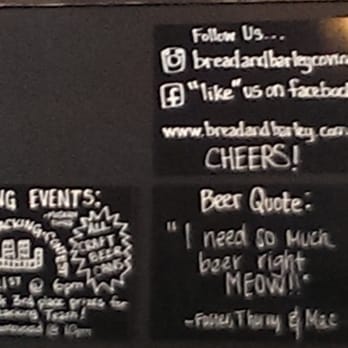 Follow Us...
breadandbarleycovina
"like" us on facebook
www.breadandbarley.com
CHEERS!
NG EVENTS:
ACKING CONTEST
ALL
CRAFT
BEER
CANS
1ST @ 6pm
& 3rd place prizes for
@ 10pm
Beer Quote:
"I need so much
beer right
MEOW!!"
- Foster, Thorny & Mac